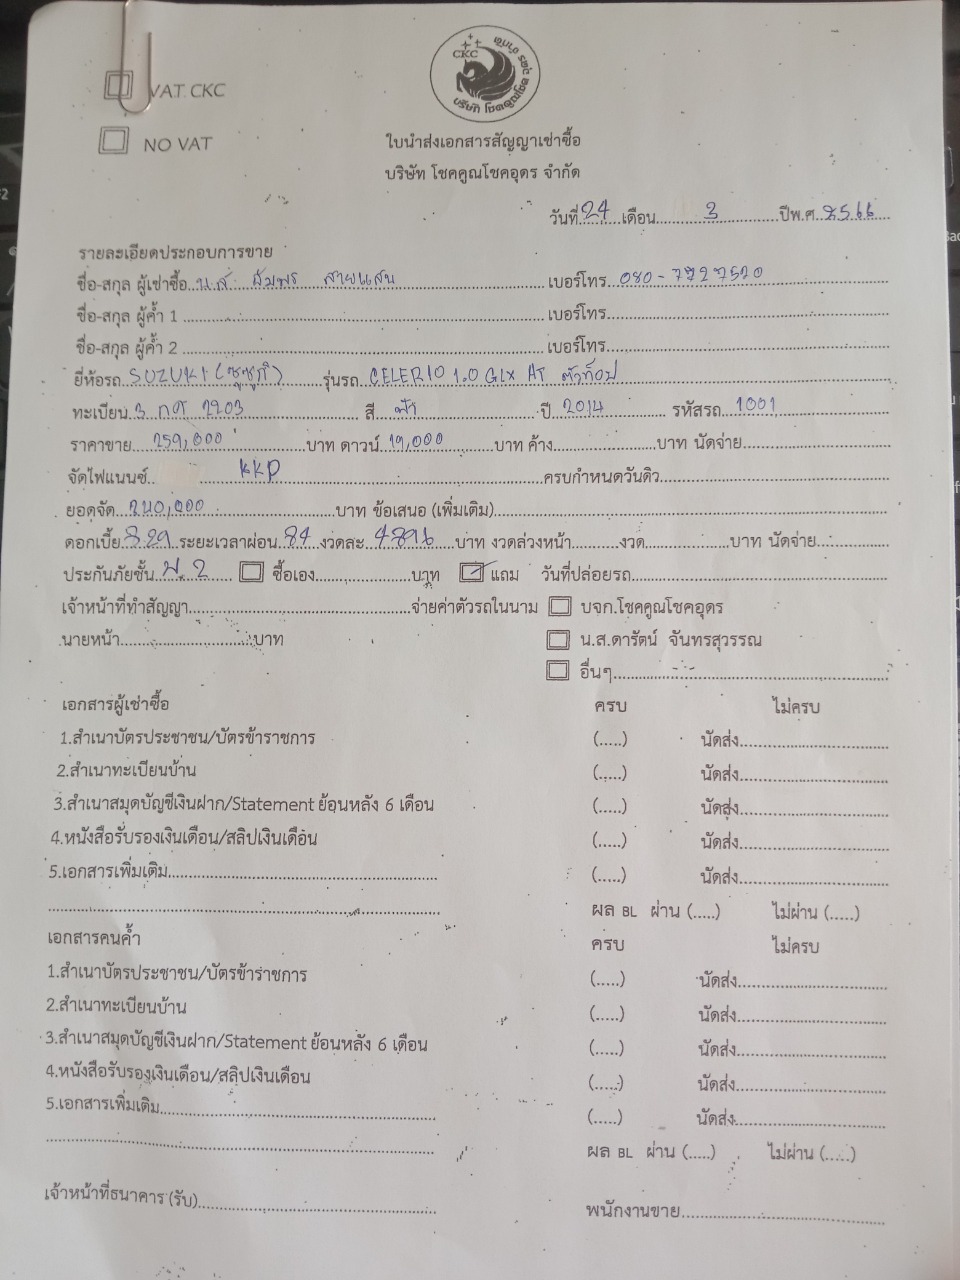 CKC
บริษัท โชคคูณโชคอุดร จำกัด
VAT CKC
NO VAT
ใบนำส่งเอกสารสัญญาเช่าซื้อ
บริษัท โชคคูณโชคอุดร จำกัด
วันที่ 24 เดือน 3 ปีพ.ศ. 2566
รายละเอียดประกอบการขาย
ชื่อ-สกุล ผู้เช่าซื้อ น.ส. สายแสน เบอร์โทร 080-7227520
ชื่อ-สกุล ผู้ค้ำ 1 เบอร์โทร
ชื่อ-สกุล ผู้ค้ำ 2 เบอร์โทร
ยี่ห้อรถ SUZUKI (ซูซูกิ) รุ่นรถ CELERIO 1.0 GLX AT ตัวท็อป
ทะเบียน 3 กต 2203 สี ฟ้า ปี 2014 รหัสรถ 1001
ราคาขาย 259,000 บาท ดาวน์ 19,000 บาท ค้าง บาท นัดจ่าย
จัดไฟแนนซ์ KKP ครบกำหนดวันดิว
ยอดจัด 240,000 บาท ข้อเสนอ (เพิ่มเติม)
ดอกเบี้ย 8.29 ระยะเวลาผ่อน 84 งวดละ 4896 บาท งวดล่วงหน้า งวด บาท นัดจ่าย
ประกันภัยชั้น ป.2 ซื้อเอง บาท แถม วันที่ปล่อยรถ
เจ้าหน้าที่ทำสัญญา จ่ายค่าตัวรถในนาม บจก.โชคคูณโชคอุดร
นายหน้า บาท น.ส.ดารัตน์ จันทรสุวรรณ
อื่นๆ
เอกสารผู้เช่าซื้อ ครบ ไม่ครบ
1.สำเนาบัตรประชาชน/บัตรข้าราชการ (.....) นัดส่ง
2.สำเนาทะเบียนบ้าน (.....) นัดส่ง
3.สำเนาสมุดบัญชีเงินฝาก/Statement ย้อนหลัง 6 เดือน (.....) นัดส่ง
4.หนังสือรับรองเงินเดือน/สลิปเงินเดือน (.....) นัดส่ง
5.เอกสารเพิ่มเติม (.....) นัดส่ง
ผล BL ผ่าน (.....) ไม่ผ่าน (.....)
เอกสารคนค้ำ ครบ ไม่ครบ
1.สำเนาบัตรประชาชน/บัตรข้าราชการ (.....) นัดส่ง
2.สำเนาทะเบียนบ้าน (.....) นัดส่ง
3.สำเนาสมุดบัญชีเงินฝาก/Statement ย้อนหลัง 6 เดือน (.....) นัดส่ง
4.หนังสือรับรองเงินเดือน/สลิปเงินเดือน (.....) นัดส่ง
5.เอกสารเพิ่มเติม (.....) นัดส่ง
ผล BL ผ่าน (.....) ไม่ผ่าน (.....)
เจ้าหน้าที่ธนาคาร (รับ) พนักงานขาย